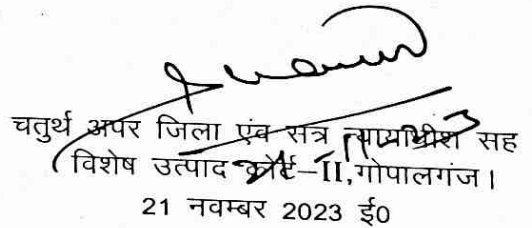 चतुर्थ अपर जिला एवं सत्र न्यायाधीश सह
विशेष उत्पाद कोर्ट-II,गोपालगंज।
21 नवम्बर 2023 ई0